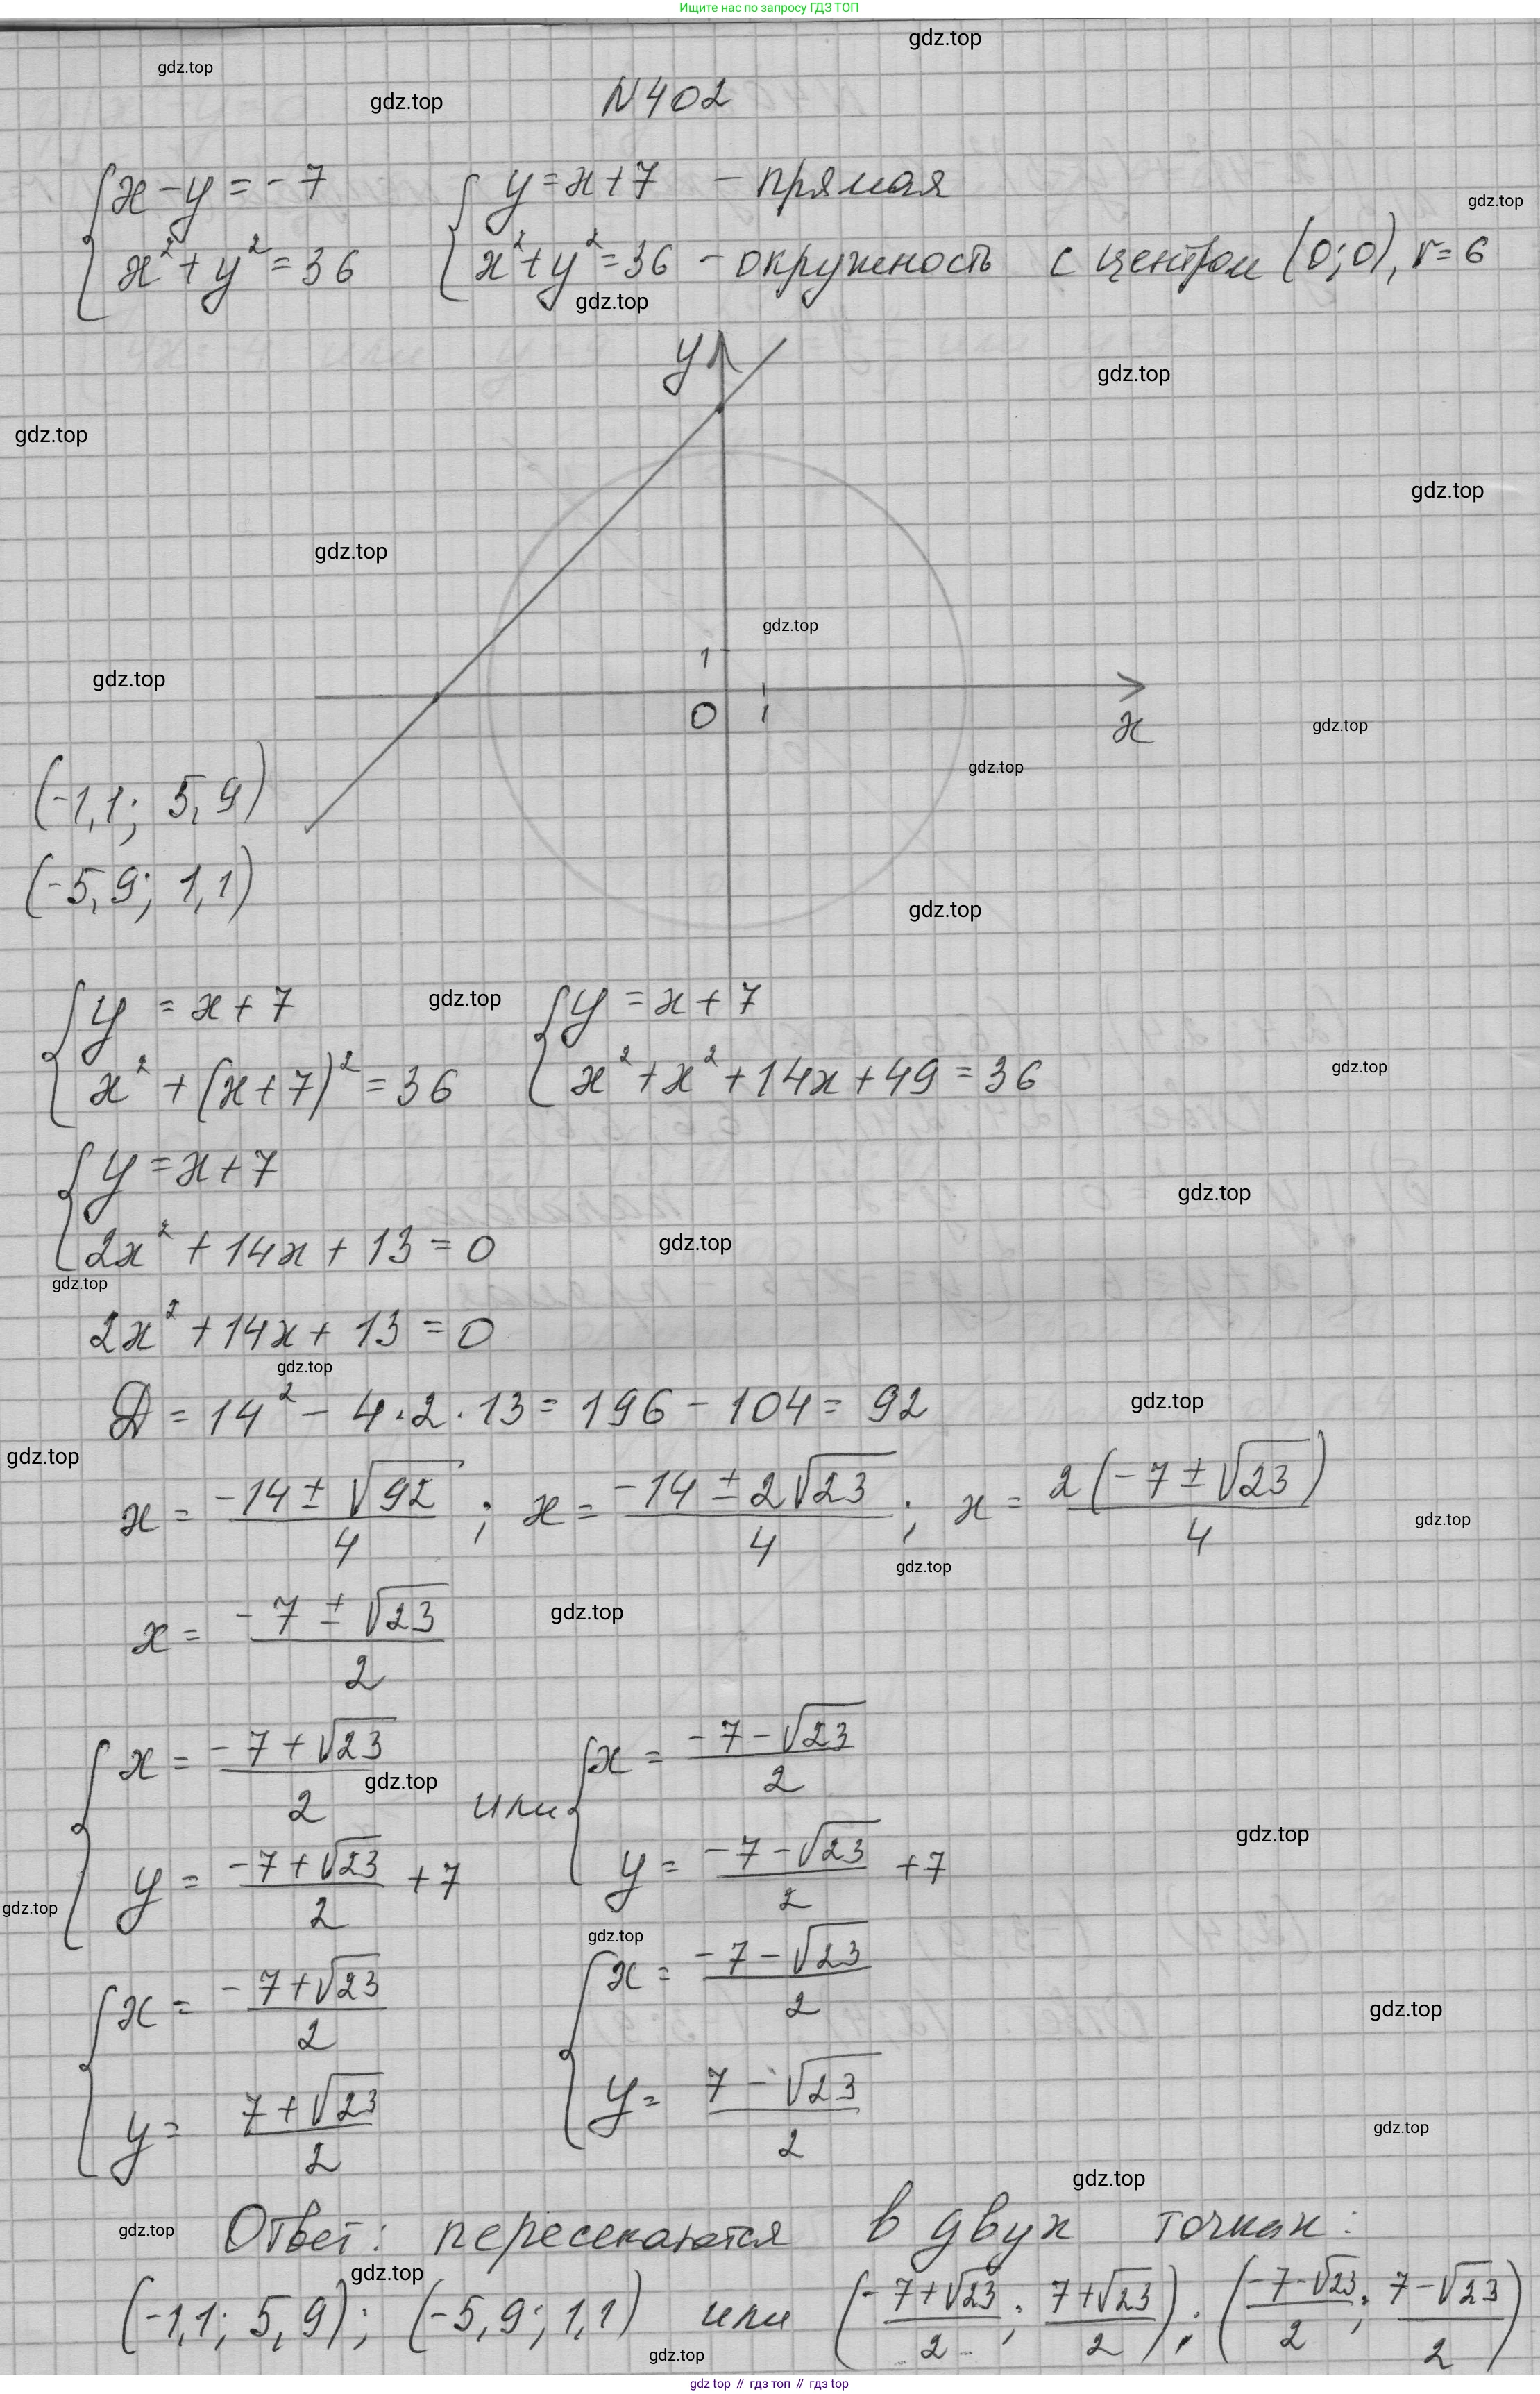 Ищите нас по запросу ГДЗ ТОП
gdz.top
gdz.top
gdz.top
N402
{ x - y = -7 { y = x + 7 - прямая
gdz.top
{ x² + y² = 36 { x² + y² = 36 - окружность с центром (0;0), r = 6
gdz.top
y
gdz.top
gdz.top
gdz.top
gdz.top
gdz.top
1
gdz.top
0 1
x
gdz.top
gdz.top
(-1,1; 5,9)
(-5,9; 1,1)
gdz.top
{ y = x + 7 gdz.top { y = x + 7
{ x² + (x+7)² = 36 { x² + x² + 14x + 49 = 36
gdz.top
{ y = x + 7
gdz.top
{ 2x² + 14x + 13 = 0
gdz.top
gdz.top
2x² + 14x + 13 = 0
gdz.top
D = 14² - 4·2·13 = 196 - 104 = 92
gdz.top
gdz.top
x = (-14 ± √92)/4 ; x = (-14 ± 2√23)/4 ; x = 2(-7 ± √23)/4
gdz.top
gdz.top
x = (-7 ± √23)/2
gdz.top
{ x = (-7 + √23)/2 или { x = (-7 - √23)/2
gdz.top
gdz.top
{ y = (-7 + √23)/2 + 7 { y = (-7 - √23)/2 + 7
gdz.top
gdz.top
{ x = (-7 + √23)/2 { x = (-7 - √23)/2
gdz.top
{ y = (7 + √23)/2 { y = (7 - √23)/2
gdz.top
gdz.top
gdz.top
Ответ: пересекаются в двух точках:
gdz.top
(-1,1; 5,9); (-5,9; 1,1) или ((-7+√23)/2; (7+√23)/2); ((-7-√23)/2; (7-√23)/2)
gdz.top
gdz top // гдз топ // гдз top